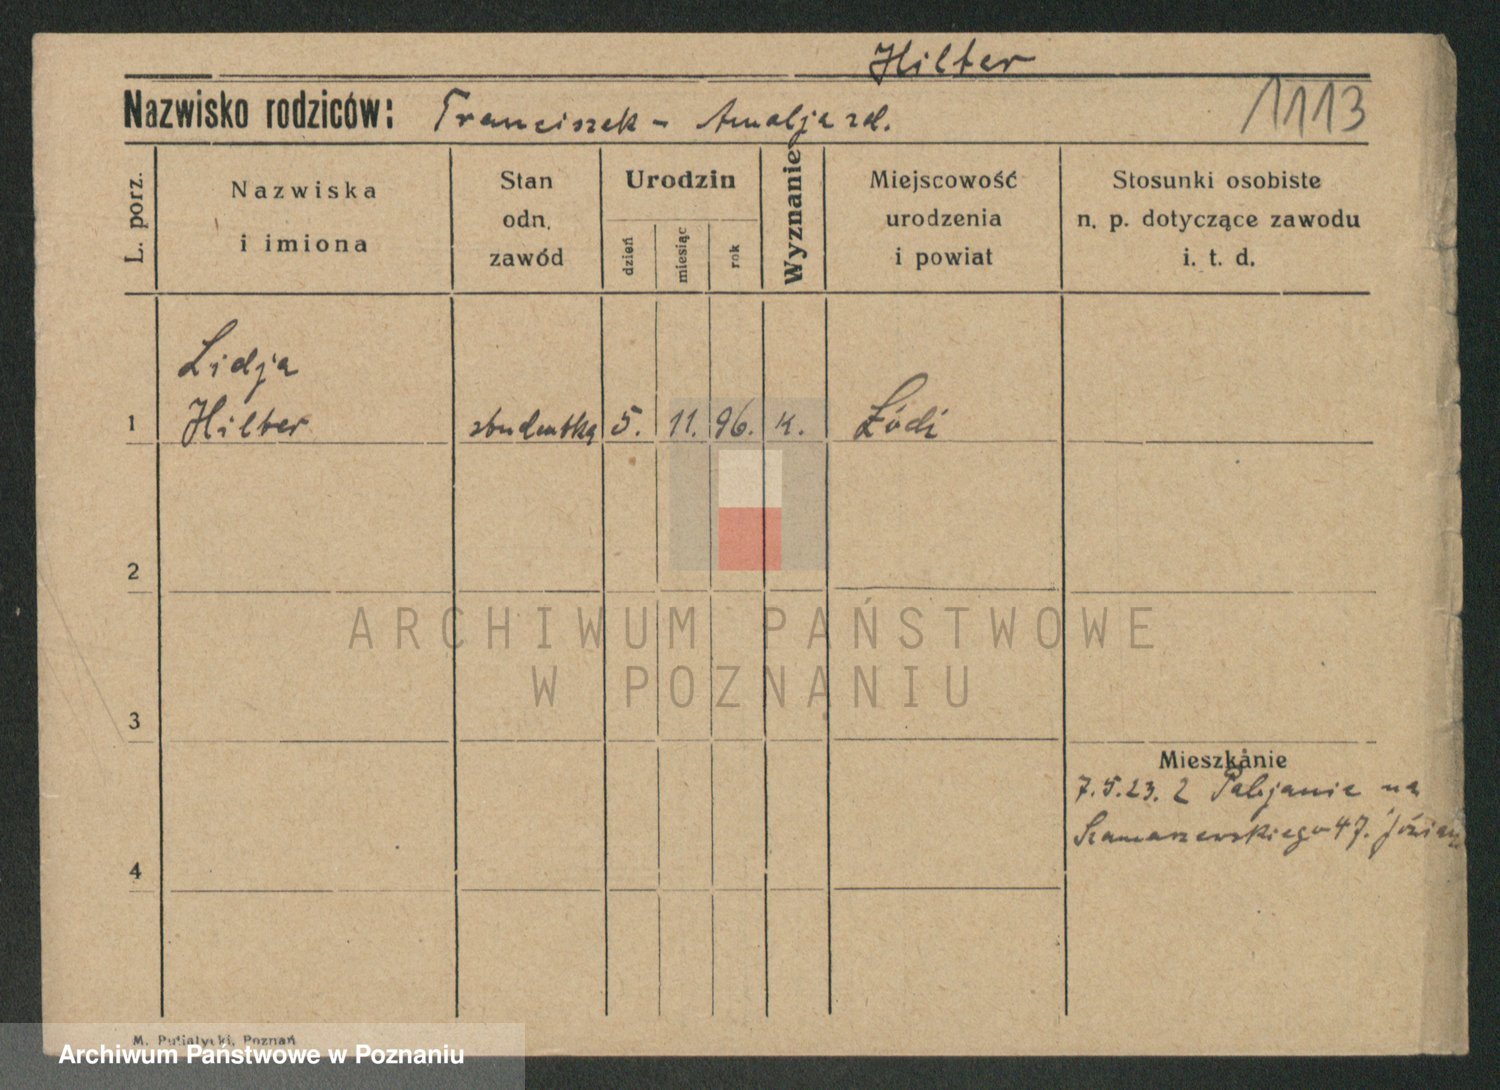 Hilter
Nazwisko rodziców: Franciszek - Amalja zd.
1113
L. porz.
Nazwiska
i imiona
Stan
odn.
zawód
Urodzin
dzień
miesiąc
rok
Wyznanie
Miejscowość
urodzenia
i powiat
Stosunki osobiste
n. p. dotyczące zawodu
i. t. d.
Lidja
1 Hilter studentka 5. 11. 96. k. Łódź
2
ARCHIWUM PAŃSTWOWE
W POZNANIU
3
Mieszkanie
7.5.23. z Pabjanic na
Szamarzewskiego 47.
4
M. Putiatycki, Poznań
Archiwum Państwowe w Poznaniu